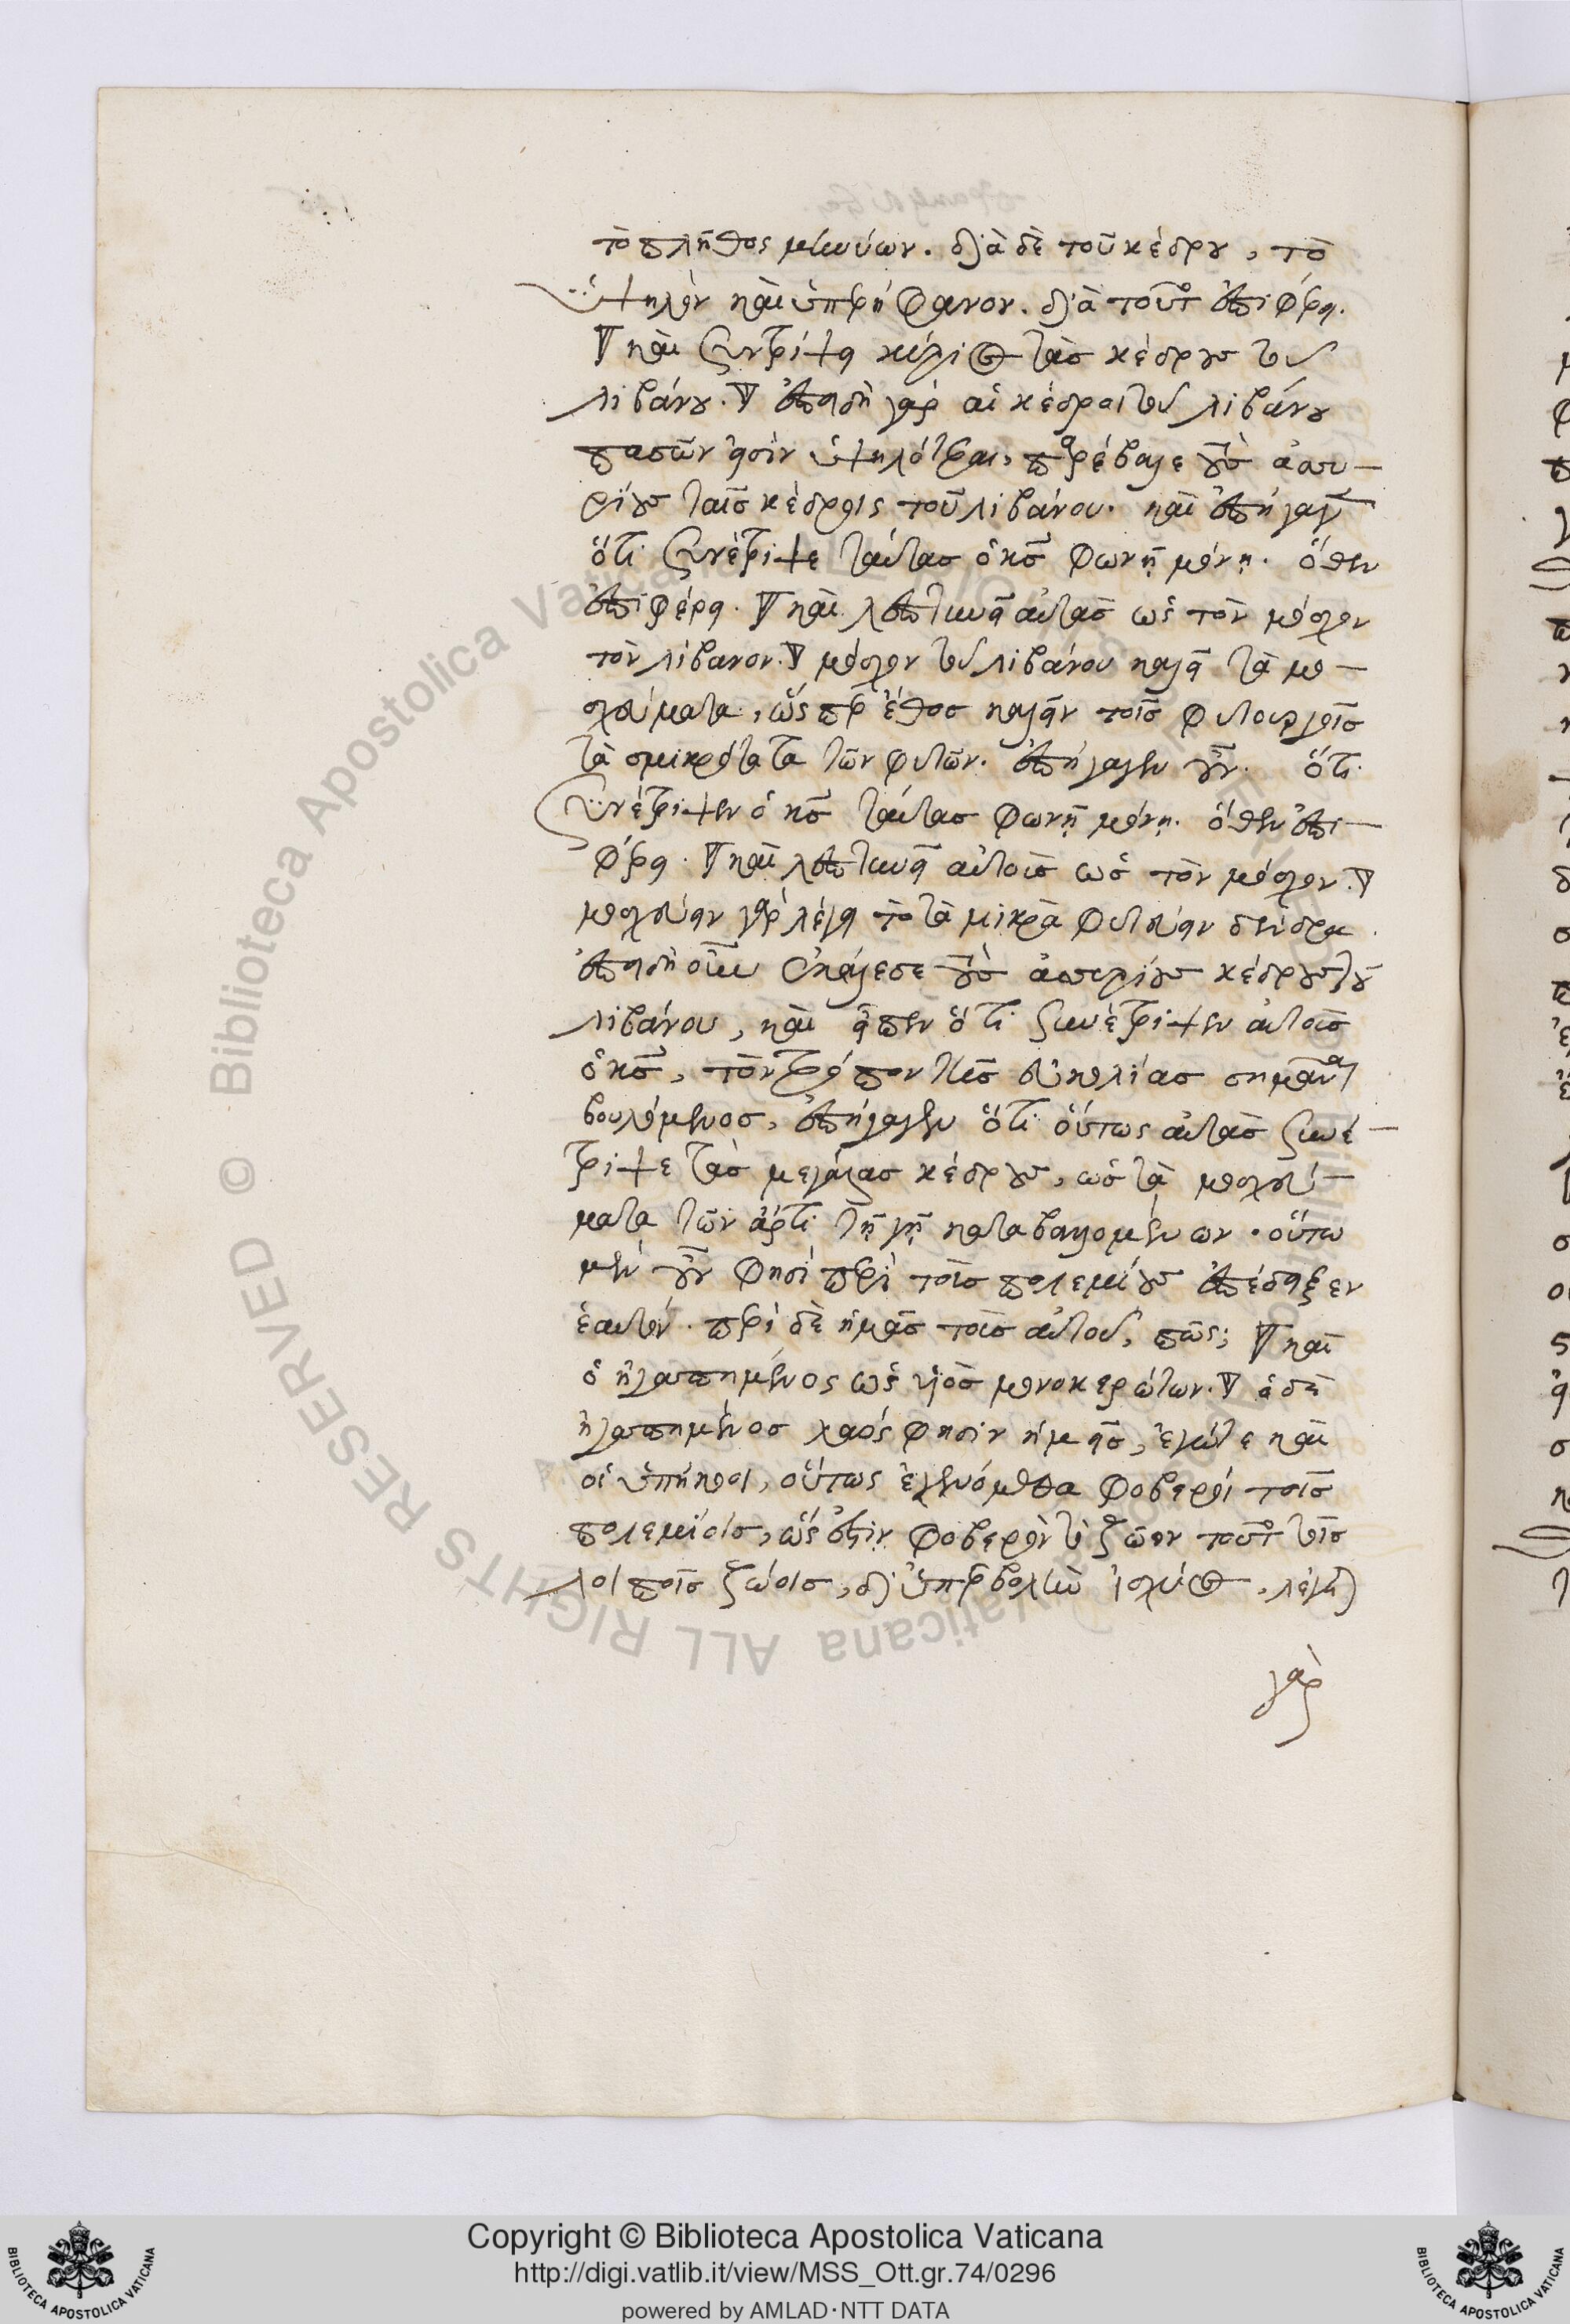 τὸ πλῆθος μηνύων. διὰ δὲ τοῦ κέδρου, τὸ
ὑψηλὸν καὶ ὑπερήφανον. διὰ τοῦτο ἐπιφέρει.
καὶ συντρίψει κύριος τὰς κέδρους τοῦ
λιβάνου. ἐπειδὴ γὰρ αἱ κέδροι τοῦ λιβάνου
πασῶν εἰσὶν ὑψηλότεραι, παρέβαλε τοὺς ἀσσυ-
ρίους ταῖς κέδροις τοῦ λιβάνου. καὶ ἐπήγαγεν
ὅτι συνέτριψε ταύτας ὁ κς φωνῇ μόνῃ. ὅθεν
ἐπιφέρει. καὶ λεπτυνεῖ αὐτὰς ὡς τὸν μόσχον
τὸν λίβανον. μόσχον τοῦ λιβάνου καλεῖ τὰ μο-
σχεύματα, ὥσπερ ἔθος καλεῖν τοῖς φυτουργοῖς
τὰ σμικρότατα τῶν φυτῶν. ἐπήγαγεν οὖν. ὅτι
συνέτριψεν ὁ κς ταύτας φωνῇ μόνῃ. ὅθεν ἐπι-
φέρει. καὶ λεπτυνεῖ αὐτοὺς ὡς τὸν μόσχον.
μοσχεύειν γὰρ λέγει τὸ τὰ μικρὰ φυτεύειν δένδρα.
ἐπειδὴ οὖν ἐκάλεσε τοὺς ἀσσυρίους κέδρους τοῦ
λιβάνου, καὶ εἶπεν ὅτι συνέτριψεν αὐτοὺς
ὁ κς, τὸν τρόπον τῆς εὐκολίας σημᾶναι
βουλόμενος, ἐπήγαγεν ὅτι οὕτως αὐτὰς συνέ-
τριψε τὰς μεγάλας κέδρους, ὡς τὰ μοσχεύ-
ματα τῶν ἄρτι τῇ γῇ καταβαλλομένων. οὕτω
μὲν οὖν φησὶ περὶ τοὺς πολεμίους ἐπέδειξεν
ἑαυτόν. περὶ δὲ ἡμᾶς τοὺς αὐτοῦ, πῶς; καὶ
ὁ ἠγαπημένος ὡς υἱὸς μονοκερώτων. ὁ δὲ
ἠγαπημένος λαός φησιν ἡμεῖς, ἐγώ τε καὶ
οἱ ὑπήκοοι, οὕτως ἐγενόμεθα φοβεροὶ τοῖς
πολεμίοις, ὥς ἐστιν φοβερὸν τὸ ζῶον τοῦτο τοῖς
λοιποῖς ζώοις, δι' ὑπερβολὴν ἰσχύος. λέγεται
γὰρ
Copyright © Biblioteca Apostolica Vaticana
http://digi.vatlib.it/view/MSS_Ott.gr.74/0296
powered by AMLAD·NTT DATA